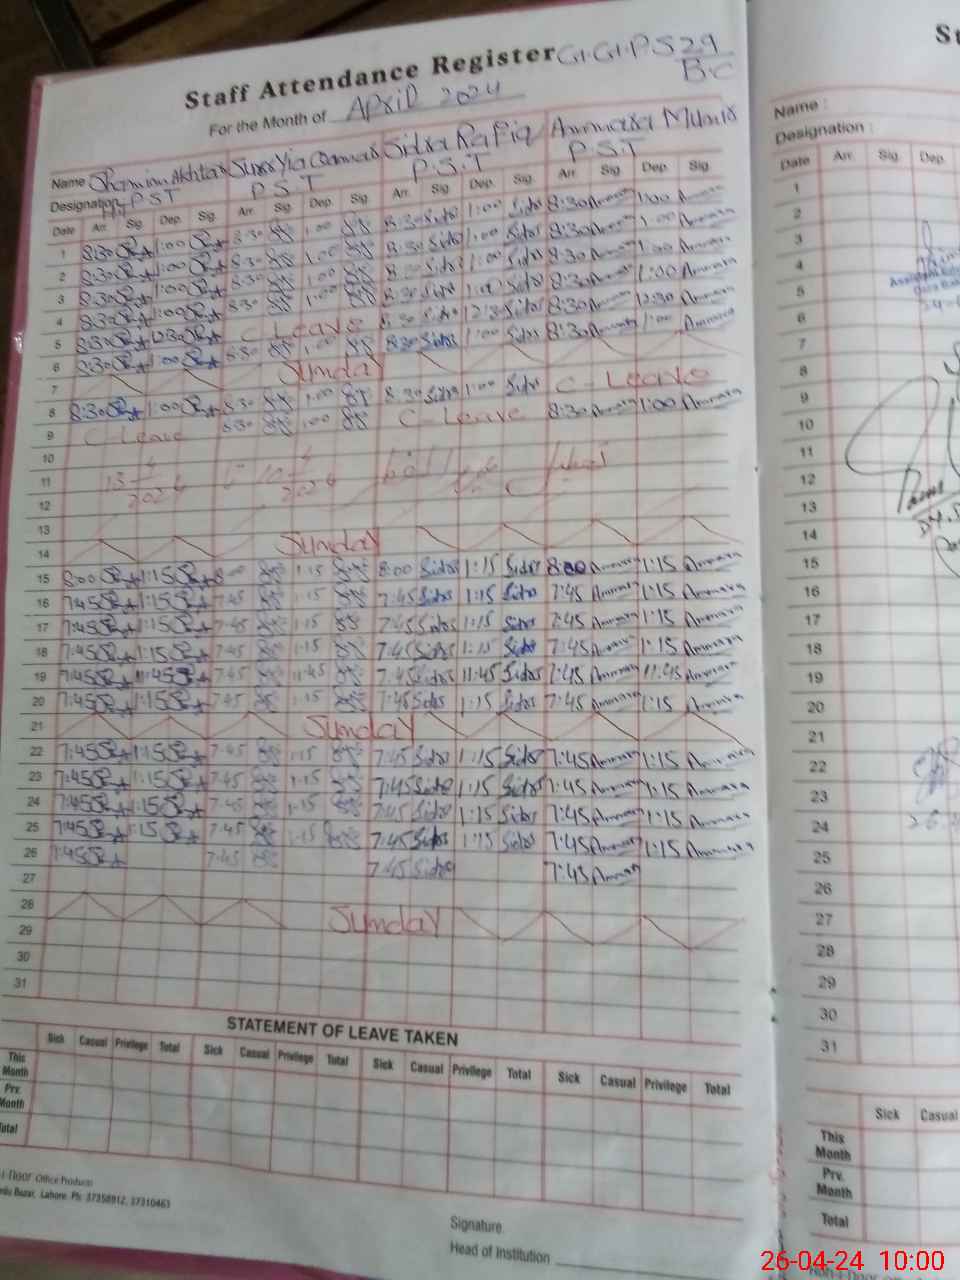 Staff Attendance Register G.G.P.S 29
B.C
For the Month of April 2024
Name Shamim Akhtar Surryia Qanwar Sidra Rafiq Ammara Munir
Designation H.T PST P.S.T P.S.T P.S.T
Date Arr. Sig Dep. Sig. Arr. Sig. Dep. Sig. Arr. Sig Dep. Sig. Arr. Sig Dep. Sig
1 8:30 1:00 8:30 1:00 8:30 Sidra 1:00 Sidra 8:30 Ammara 1:00 Ammara
2 8:30 1:00 8:30 1:00 8:30 Sidra 1:00 Sidra 8:30 Ammara 1:00 Ammara
3 8:30 1:00 8:30 1:00 8:30 Sidra 1:00 Sidra 8:30 Ammara 1:00 Ammara
4 8:30 1:00 8:30 1:00 8:30 Sidra 1:00 Sidra 8:30 Ammara 1:00 Ammara
5 8:30 12:30 C-Leave 8:30 Sidra 12:30 Sidra 8:30 Ammara 12:30 Ammara
6 8:30 1:00 8:30 1:00 8:30 Sidra 1:00 Sidra 8:30 Ammara 1:00 Ammara
7 Sunday
8 8:30 1:00 8:30 1:00 8:30 Sidra 1:00 Sidra C-Leave
9 C-Leave 8:30 1:00 C-Leave 8:30 Ammara 1:00 Ammara
10
11 13 4 2024 10 4 2024
12
13
14 Sunday
15 8:00 1:15 8:00 1:15 8:00 Sidra 1:15 Sidra 8:00 Ammara 1:15 Ammara
16 7:45 1:15 7:45 1:15 7:45 Sidra 1:15 Sidra 7:45 Ammara 1:15 Ammara
17 7:45 1:15 7:45 1:15 7:45 Sidra 1:15 Sidra 7:45 Ammara 1:15 Ammara
18 7:45 1:15 7:45 1:15 7:45 Sidra 1:15 Sidra 7:45 Ammara 1:15 Ammara
19 7:45 11:45 7:45 11:45 7:45 Sidra 11:45 Sidra 7:45 Ammara 11:45 Ammara
20 7:45 1:15 7:45 1:15 7:45 Sidra 1:15 Sidra 7:45 Ammara 1:15 Ammara
21 Sunday
22 7:45 1:15 7:45 1:15 7:45 Sidra 1:15 Sidra 7:45 Ammara 1:15 Ammara
23 7:45 1:15 7:45 1:15 7:45 Sidra 1:15 Sidra 7:45 Ammara 1:15 Ammara
24 7:45 1:15 7:45 1:15 7:45 Sidra 1:15 Sidra 7:45 Ammara 1:15 Ammara
25 7:45 1:15 7:45 1:15 7:45 Sidra 1:15 Sidra 7:45 Ammara 1:15 Ammara
26 7:45 7:45 7:45 Sidra 7:45 Ammara
27
28 Sunday
29
30
31
STATEMENT OF LEAVE TAKEN
Sick Casual Privilege Total Sick Casual Privilege Total Sick Casual Privilege Total Sick Casual Privilege Total
This Month
Prv. Month
Total
Office Products
Bazar, Lahore. Ph: 37358912, 37310463
Signature
Head of Institution
Name :
Designation :
Date Arr. Sig Dep.
1
2
3
4
5
6
7
8
9
10
11
12
13
14
15
16
17
18
19
20
21
22
23
24
25
26
27
28
29
30
31
Sick Casual
This Month
Prv. Month
Total
26-04-24 10:00